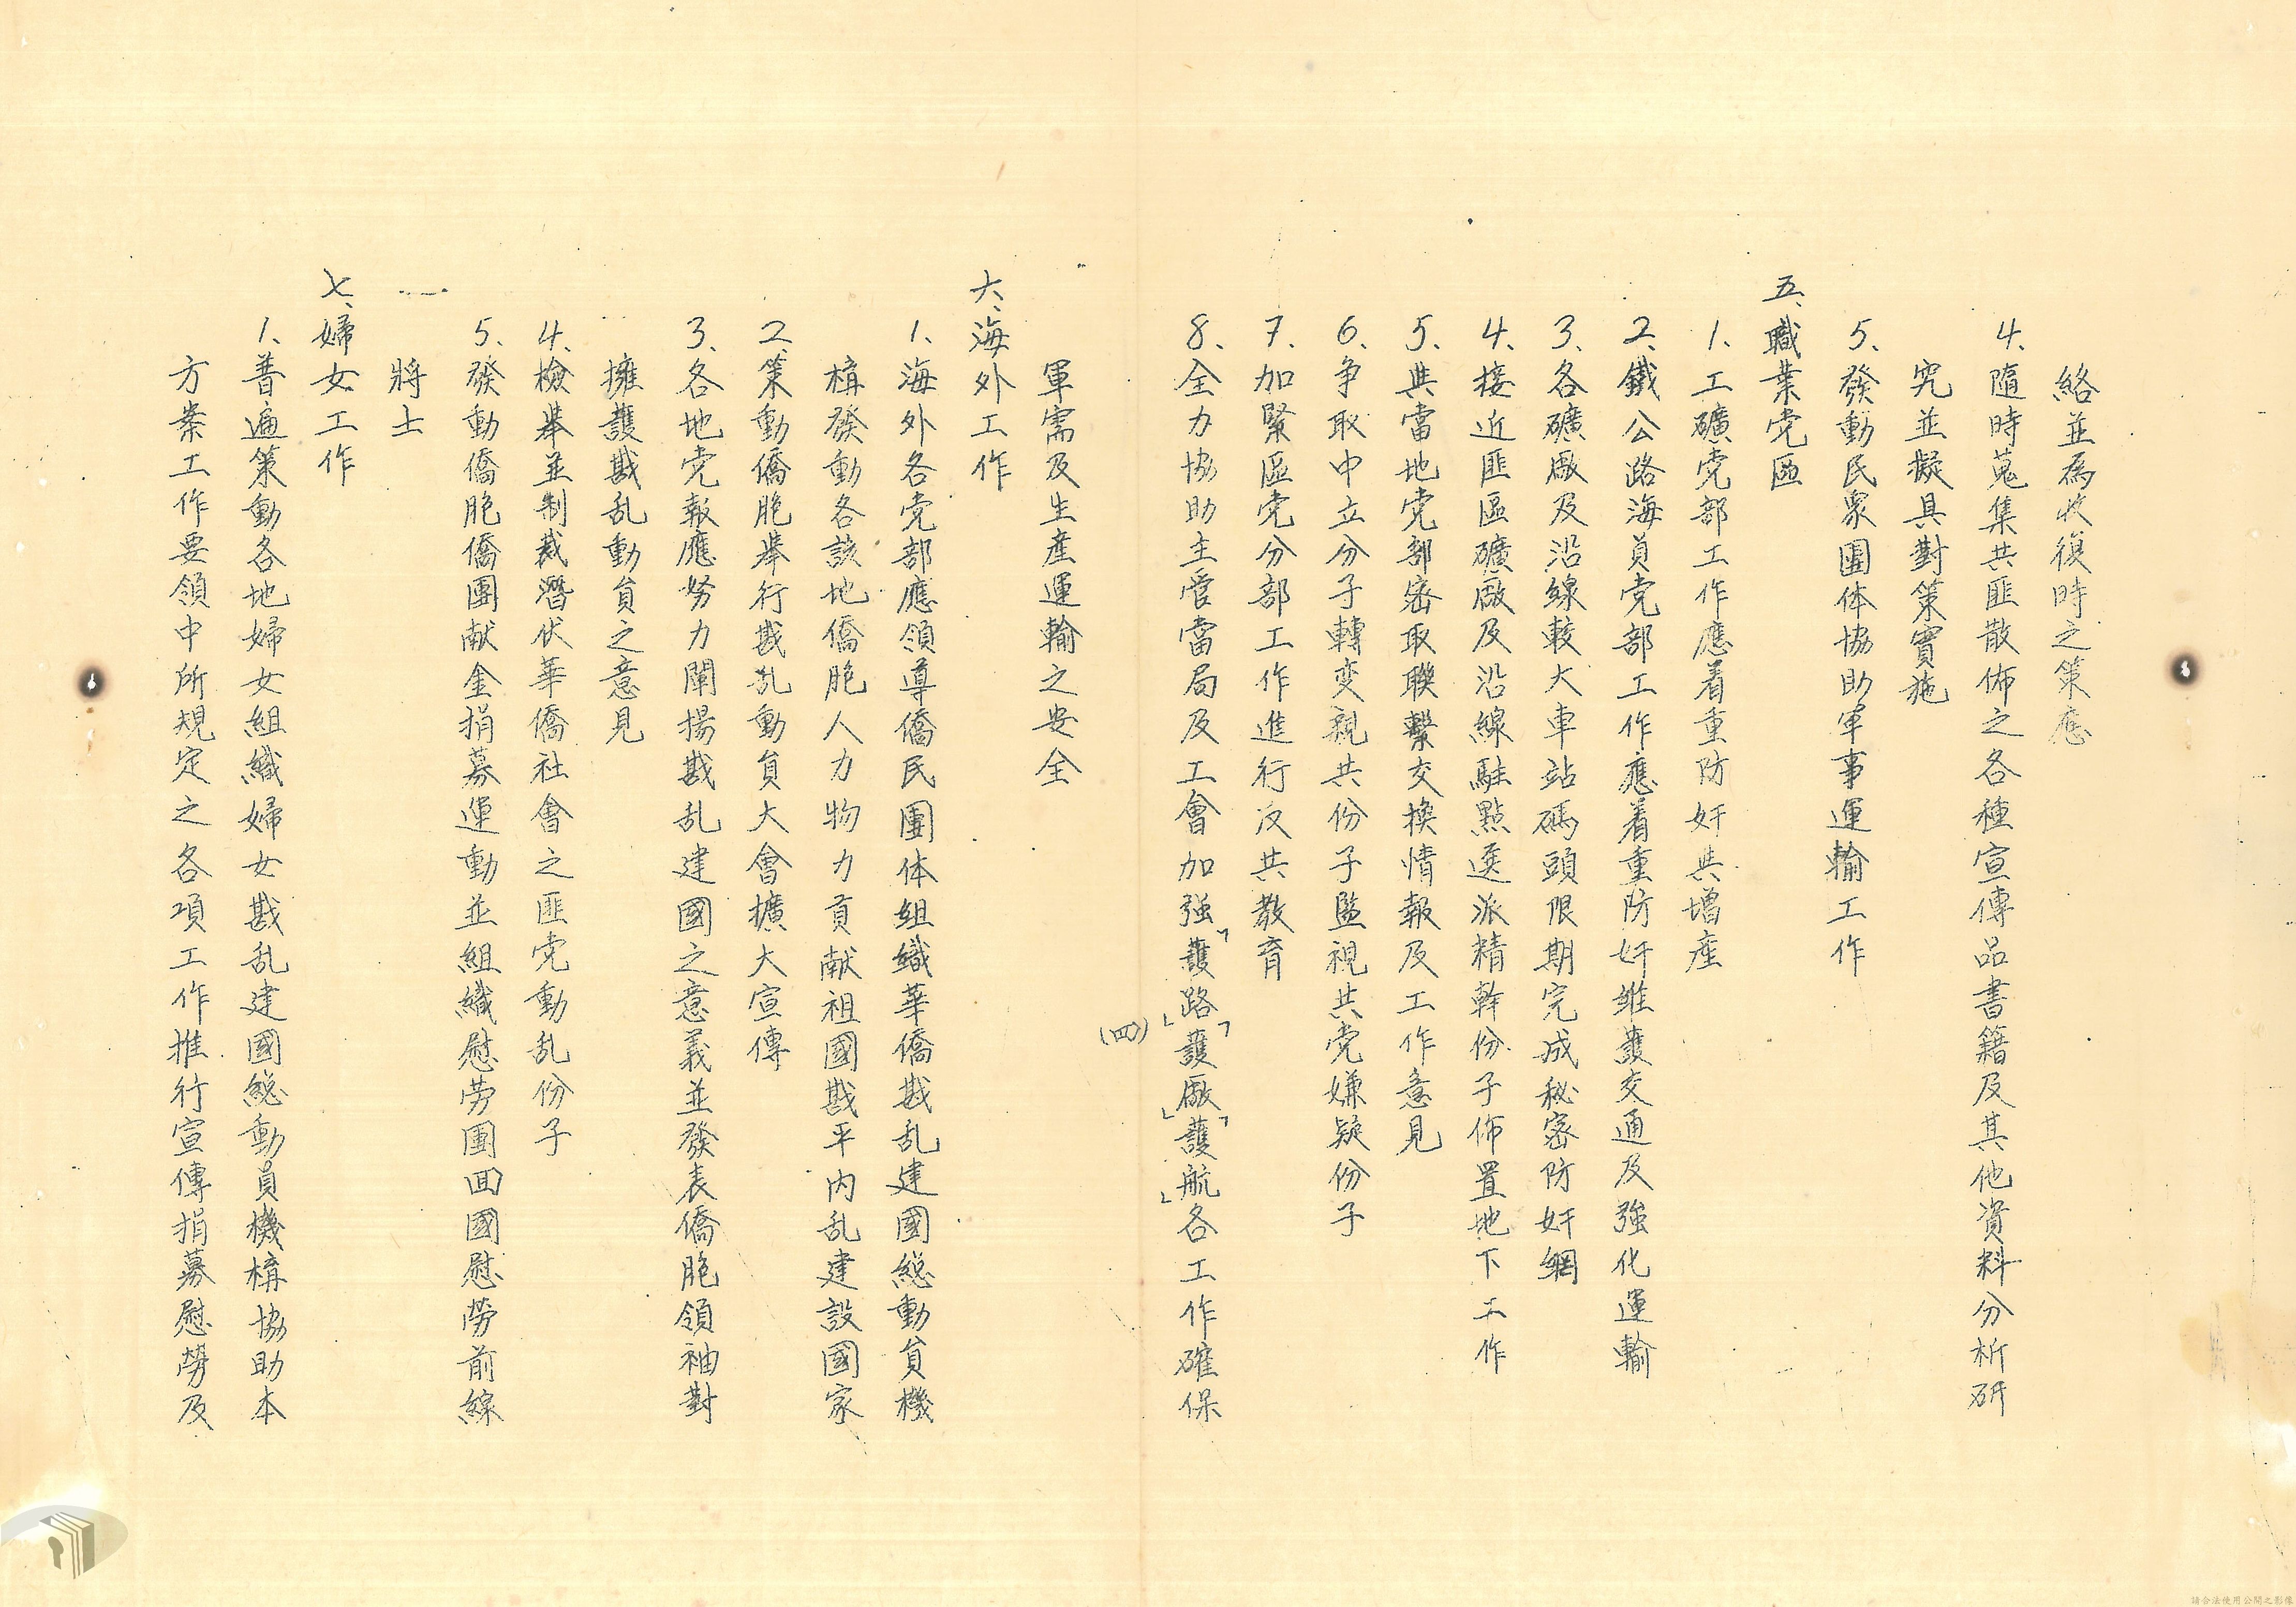 絡並為收復時之策應
4、隨時蒐集共匪散佈之各種宣傳品書籍及其他資料分析研
究並擬具對策實施
5、發動民眾團体協助軍事運輸工作
五、職業党區
1、工礦党部工作應着重防奸共增產
2、鐵公路海員党部工作應着重防奸維護交通及強化運輸
3、各礦廠及沿線較大車站碼頭限期完成秘密防奸網
4、接近匪區礦廠及沿線駐點選派精幹份子佈置地下工作
5、與當地党部密取聯繫交換情報及工作意見
6、争取中立分子轉变親共份子監視共党嫌疑份子
7、加緊區党分部工作進行反共教育
8、全力協助主管當局及工會加强「護路」「護廠」「護航」各工作確保
(四)
軍需及生產運輸之安全
六、海外工作
1、海外各党部應領導僑民團体組織華僑戡乱建國総動員機
構發動各該地僑胞人力物力貢献祖國戡平内乱建設國家
2、策動僑胞舉行戡乱動員大會擴大宣傳
3、各地党報應努力闡揚戡乱建國之意義並發表僑胞領袖對
擁護戡乱動員之意見
4、檢舉並制裁潛伏華僑社會之匪党動乱份子
5、發動僑胞僑團献金捐募運動並組織慰劳團囬國慰勞前線
將士
七、婦女工作
1、普遍策動各地婦女組織婦女戡乱建國総動員機構協助本
方案工作要領中所規定之各項工作推行宣傳捐募慰勞及
請合法使用公開之影像